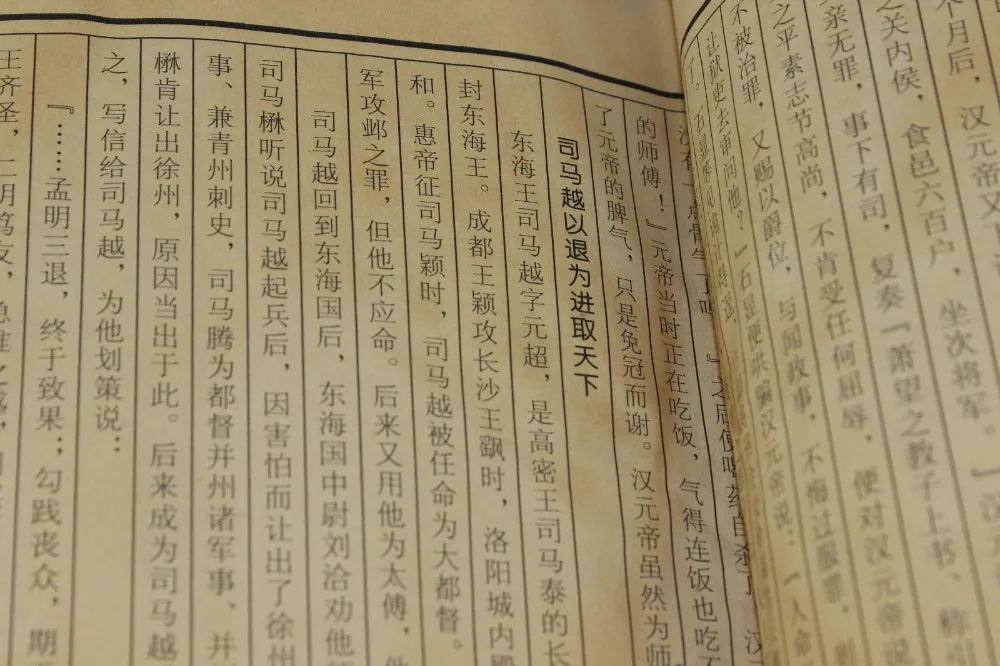 个月后，汉元帝又
之关内侯，食邑六百户，坐次将军。”汉
亲无罪，事下有司，复奏“萧望之教子上书、称引
之平素志节高尚，不肯受任何屈辱，便对汉元帝说
不被治罪，又赐以爵位，与闻政事，不悔过服罪，
让狱吏去审问他？”石显便哄骗汉元帝说：“人命
之后便喝药自杀了
的师傅！』元帝当时正在吃饭，气得连饭也吃不
了元帝的脾气，只是免冠而谢。汉元帝虽然为师
司马越以退为进取天下
东海王司马越字元超，是高密王司马泰的长
封东海王。成都王颖攻长沙王飖时，洛阳城内殿
和。惠帝征司马颖时，司马越被任命为大都督。
军攻邺之罪，但他不应命。后来又用他为太傅，他
司马越回到东海国后，东海国中尉刘洽劝他
司马楙听说司马越起兵后，因害怕而让出了徐州
事、兼青州刺史，司马腾为都督并州诸军事、并
楙肯让出徐州，原因当出于此。后来成为司马越
之，写信给司马越，为他划策说：
『……孟明三退，终于致果；勾践丧众，期
王齐圣，二明笃友，急难之感，同